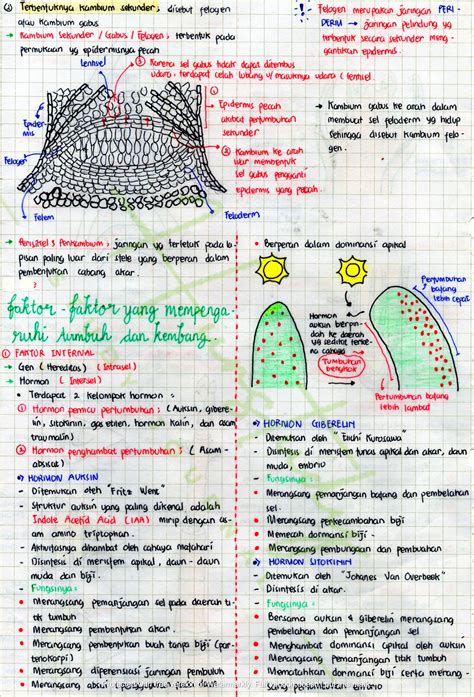 ③ Terbentuknya kambium sekunder, disebut felogen
atau kambium gabus
→ Kambium Sekunder / Gabus / Felogen, terbentuk pada
permukaan yg epidermisnya pecah
Lentisel
③ Karena sel gabus tidak dapat ditembus
udara, terdapat celah lubang u/ masuknya udara (lentisel.
Epidermis
Felogen
Felem
Feloderm
① Epidermis pecah
akibat pertumbuhan
sekunder
② Kambium ke arah
luar membentuk
sel gabus pengganti
epidermis yang pecah.
Felogen merupakan jaringan PERI-
DERM → jaringan pelindung yg
terbentuk secara sekunder meng-
gantikan epidermis.
→ Kambium gabus ke arah dalam
membuat sel feloderm yg hidup
sehingga disebut kambium felo-
gen.
→ Perisikel / Perikambium, jaringan yg terletak pada la-
pisan paling luar dari stele yang berperan dalam
pembentukan cabang akar.
Faktor-faktor yang mempenga-
ruhi tumbuh dan kembang.
① FAKTOR INTERNAL
→ Gen (Hereditas) (Intrasel)
→ Hormon (Intersel)
• Terdapat 2 kelompok hormon :
① Hormon pemicu pertumbuhan : (Auksin, gibere-
lin, sitokinin, gas etilen, hormon kalin, dan asam
traumalin)
② Hormon penghambat pertumbuhan : (Asam-
absisat)
HORMON AUKSIN
- Ditemukan oleh "Fritz Went"
- Struktur auksin yang paling dikenal adalah
Indole Acetid Acid (IAA) mirip dengan as-
am amino triptophan.
- Aktivitasnya dihambat oleh cahaya matahari
- Disintesis di meristem apikal, daun-daun
muda dan biji.
- Fungsinya :
• Merangsang pemanjangan sel pada daerah ti-
tik tumbuh
• Merangsang pembentukan akar.
• Merangsang pembentukan buah tanpa biji (par-
tenokarpi)
• Merangsang diferensiasi jaringan pembuluh
• Merangsang absisi
• Berperan dalam dominansi apikal
Hormon
auksin berpin-
dah ke daerah
yg sedikit terke-
na cahaya
Tumbuhan
bengkok
Pertumbuhan
batang
lebih cepat
Pertumbuhan batang
lebih lambat
HORMON GIBERELIN
- Ditemukan oleh "Eiichi Kurosawa"
- Disintesis di meristem tunas apikal dan akar, daun
muda, embrio
- Fungsinya :
• Merangsang pemanjangan batang dan pembelahan
sel.
• Merangsang perkecambahan biji
• Memecah dormansi biji.
• Merangsang pembungaan dan pembuahan
HORMON SITOKININ
- Ditemukan oleh "Johanes Van Overbeek"
- Disintesis di akar.
- Fungsinya :
• Bersama auksin & giberelin merangsang
pembelahan dan pemanjangan sel
• Menghambat dominansi apikal oleh auksin
• Merangsang pemanjangan titik tumbuh
• Mematahkan dormansi biji serta merang-